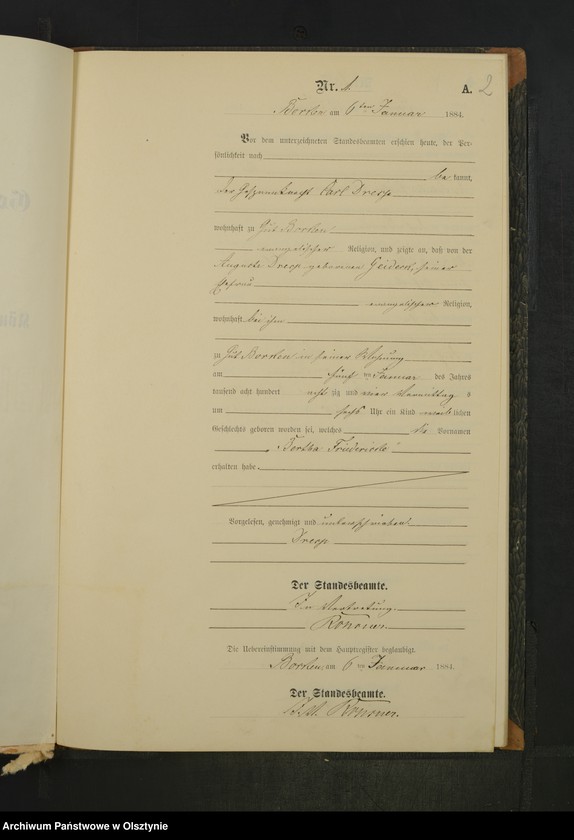 Nr. 1. A. 2
Borken am 6ten Januar 1884.
Vor dem unterzeichneten Standesbeamten erschien heute, der Per-
sönlichkeit nach
be kannt,
der Gespannknecht Carl
wohnhaft zu Gut Borken
evangelischer Religion, und zeigte an, daß von der
Auguste geborenen seiner
Ehefrau
evangelischer Religion,
wohnhaft bei ihm
zu Gut Borken in seiner Wohnung
am fünf ten Januar des Jahres
tausend acht hundert acht zig und vier Vormittag s
um sechs Uhr ein Kind weib lichen
Geschlechts geboren worden sei, welches die Vornamen
Bertha Friedericke
erhalten habe.
Vorgelesen, genehmigt und unterschrieben
Der Standesbeamte.
In Vertretung
Die Uebereinstimmung mit dem Hauptregister beglaubigt.
Borken am 6 ten Januar 1884.
Der Standesbeamte.
Archiwum Państwowe w Olsztynie